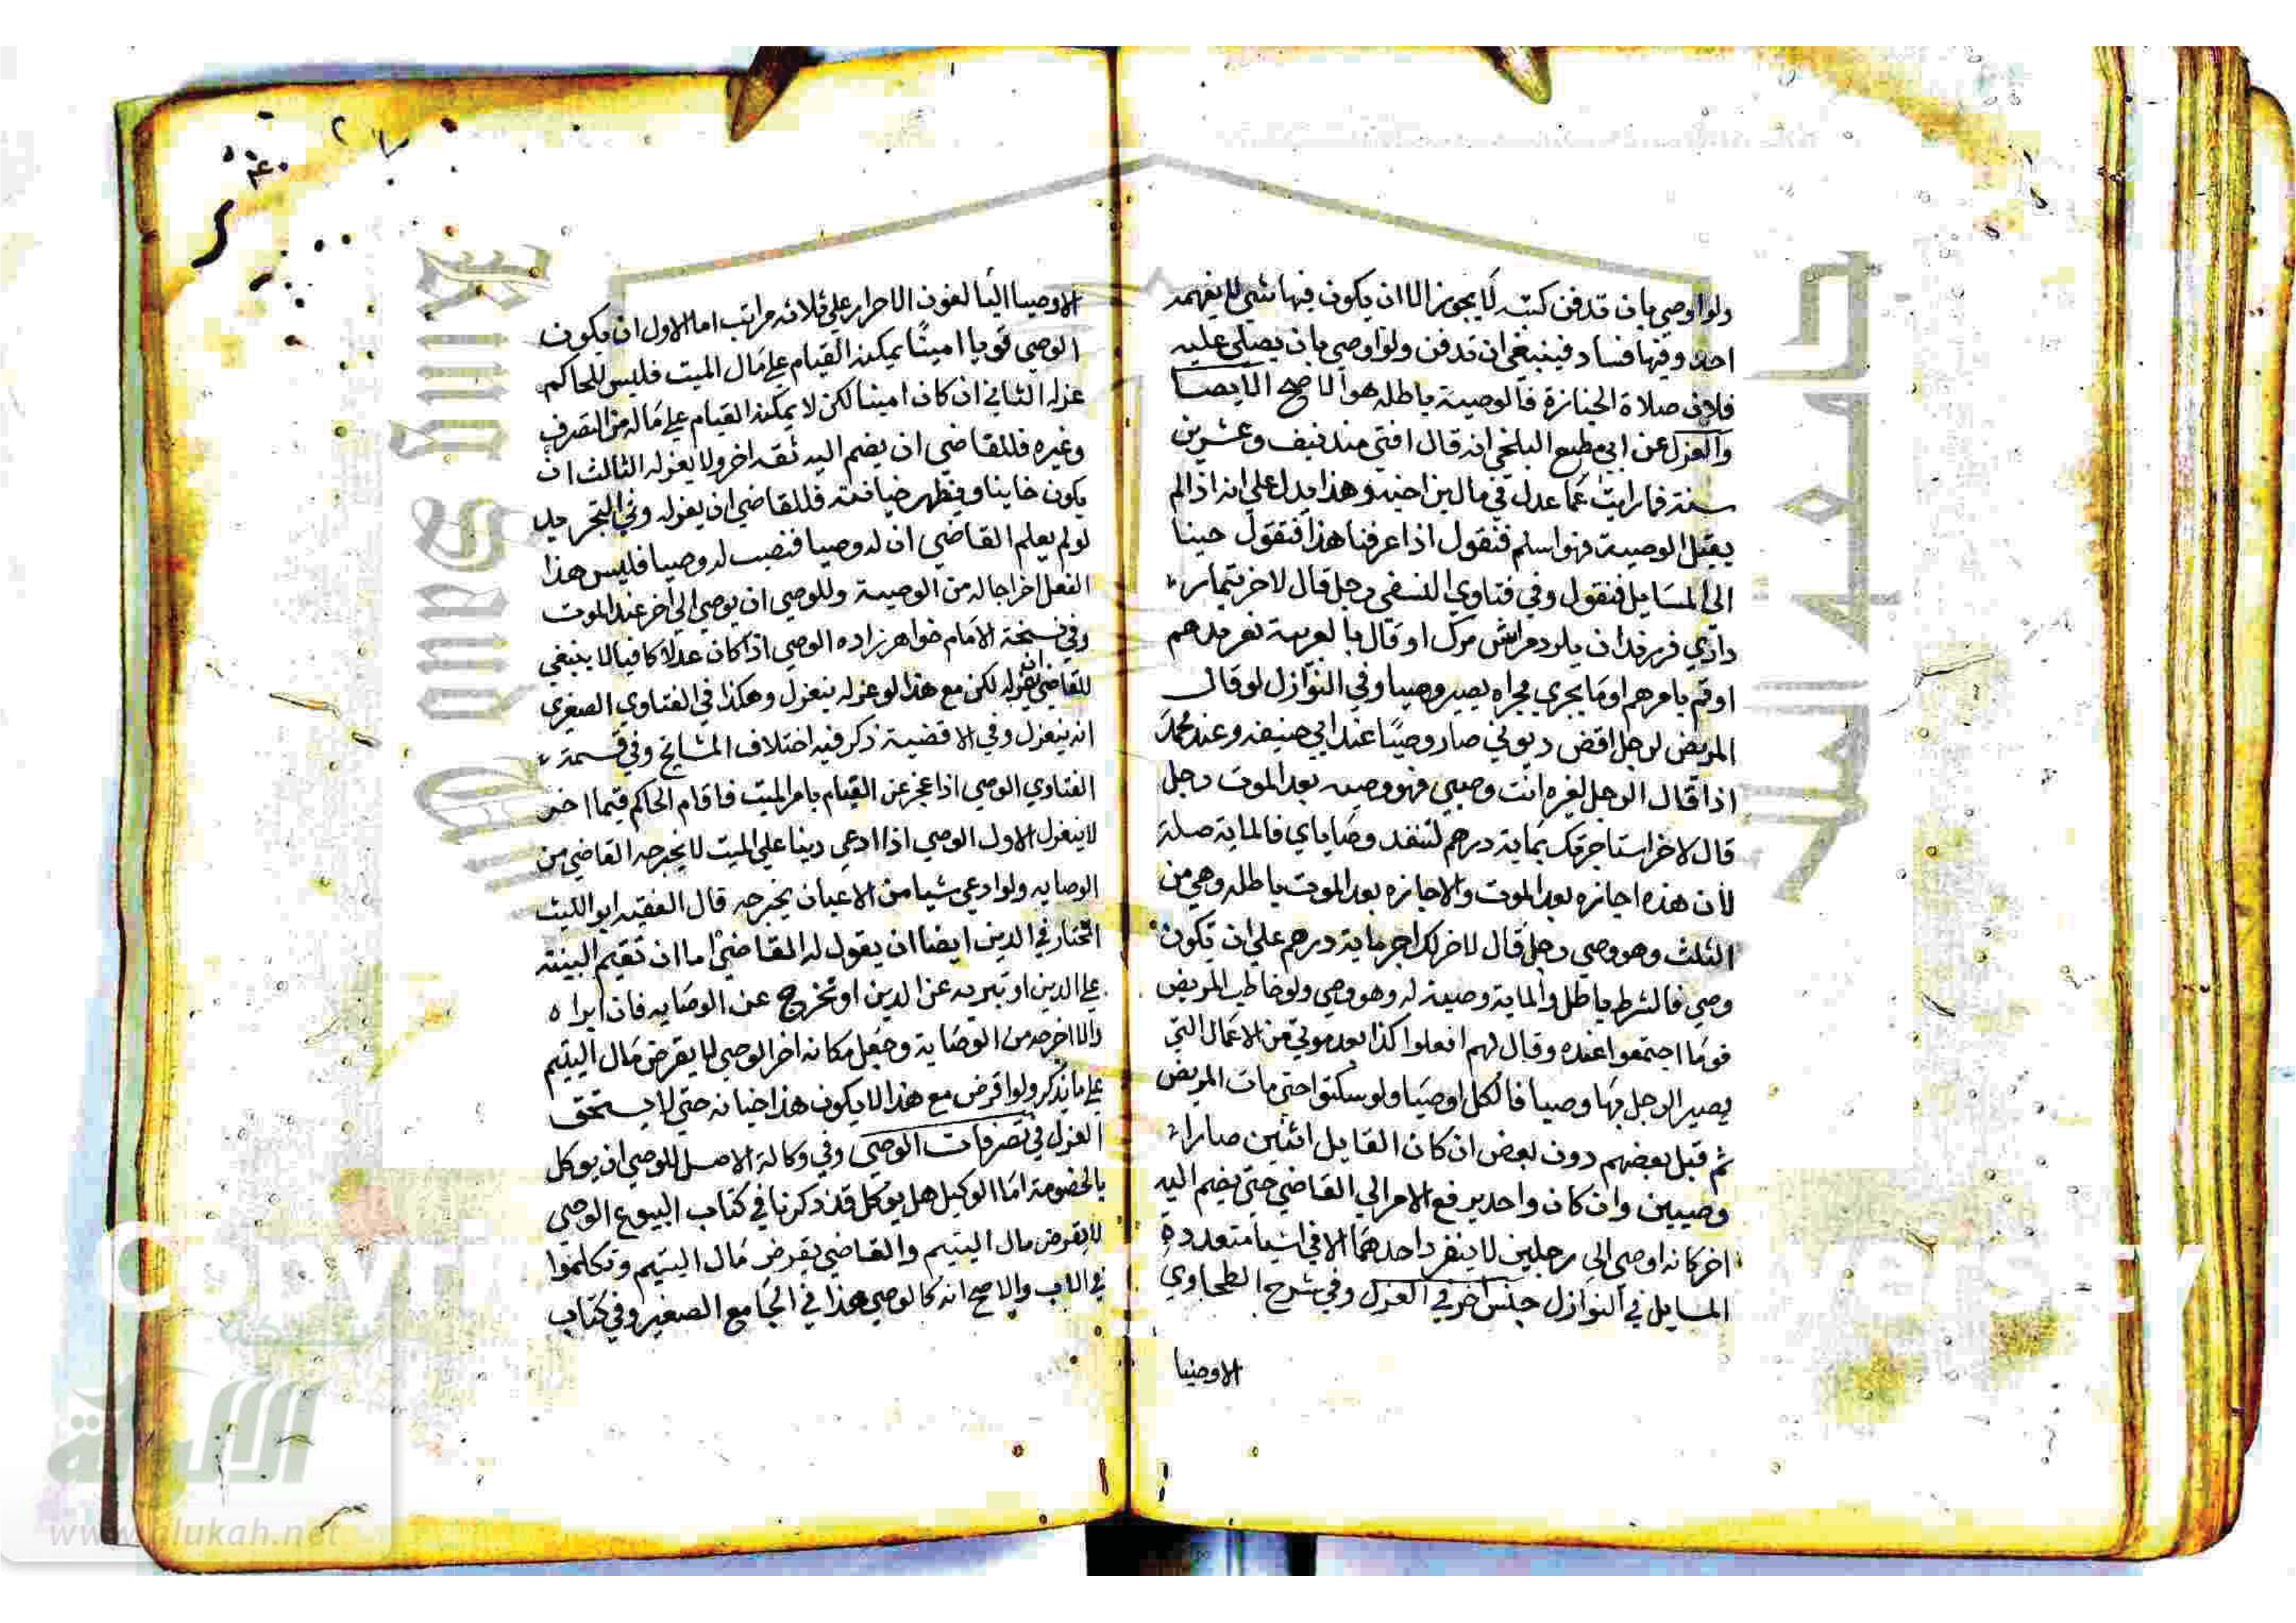 ولو اوصي بان تدفن كتبه لا يجوز الا ان يكون فيها شي لا يفهمه
احد وفيها فساد فينبغي ان تدفن ولو اوصي بان يصلي عليه
فلان صلاة الجنازة فالوصية باطله هو الاصح الايصا
والعزل عن ابي مطيع البلخي انه قال افتي منذ نيف وعشرين
سنة فما رايت عما عدل في مال بن اخيه وهذا يدل علي انه اذا لم
يقبل الوصية فهو اسلم فنقول اذا عرفنا هذا فنقول جينا
الي المسايل فنقول وفي فتاوي النسفي رجل قال لاخر تيمار
داري فرزندان
او قم بامرهم او ما يجري مجراه يصير وصيا وفي النوازل لو قال
المريض لرجل اقض ديوني صار وصيا عند ابي حنيفه وعند محمد
اذا قال الرجل لغيره انت وصيي فهو وصيه بعد الموت رجل
قال لاخر استاجرتك بماية درهم لتنفد وصاياي فالماية صلة
لان هذه اجازه بعد الموت والاجازه بعد الموت باطله وهي من
الثلث وهو وصي رجل قال لاخر لك اجر ماية درهم علي ان تكون
وصي فالشرط باطل والماية وصية له وهو وصي ولو خاطب المريض
قوما اجتمعوا عنده وقال لهم افعلوا كذا بعد موتي من الاعمال التي
يصير الرجل بها وصيا فالكل اوصيا ولو سكتوا حتي مات المريض
ثم قبل بعضهم دون بعض ان كان القابل اثنين صارا
وصيين وان كان واحد يرفع الامر الي القاضي حتي يضم اليه
اخر كانه اوصي الي رجلين لا ينفرد احدهما الا في اشيا متعدده
المسايل في النوازل جنس اخر في العزل وفي شرح الطحاوي
الاوصيا
الاوصيا البالغون الاحرار علي ثلاثه مراتب اما الاول ان يكون
الوصي قويا امينا يمكنه القيام علي مال الميت فليس للحاكم
عزله الثاني ان كان امينا لكن لا يمكنه القيام علي ماله من التصرف
وغيره فللقاضي ان يضم اليه ثقه اخر ولا يعزله الثالث ان
يكون خاينا وفيظهر خيانته فللقاضي ان يعزله وفي التجريد
لو لم يعلم القاضي ان له وصيا فنصب له وصيا فليس هذا
الفعل اخراجا له من الوصية وللوصي ان يوصي الي اخر عند الموت
وفي نسخة الامام خواهرزاده الوصي اذا كان عدلا كافيا لا ينبغي
للقاضي ان يعزله لكن مع هذا لو عزله ينعزل وهكذا في الفتاوي الصغري
انه ينعزل وفي الاقضية ذكر فيه اختلاف المشايخ وفي قسمة
الفتاوي الوصي اذا عجز عن القيام بامر الميت فاقام الحاكم قيما اخر
لا ينعزل الاول الوصي اذا ادعي دينا علي الميت لا يخرجه القاضي من
الوصايه ولو ادعي شيا من الاعيان يخرجه قال الفقيه ابو الليث
المختار في الدين ايضا ان يقول له القاضي اما ان تقيم البينة
علي الدين او تبريه عن الدين او تخرج عن الوصايه فان ابراه
والا اخرجه من الوصاية وجعل مكانه اخر الوصي لا يقرض مال اليتيم
علي ما يذكر ولو اقرض مع هذا لا يكون هذا خيانه حتي لا يستحق
العزل في تصرفات الوصي وفي وكالة الاصل للوصي ان يوكل
بالخصومة اما الوكيل هل يوكل قد ذكرنا في كتاب البيوع الوصي
لا يقرض مال اليتيم والقاضي يقرض مال اليتيم وتكلموا
في الاب والاصح انه كالوصي هذا في الجامع الصغير وفي كتاب
جامعة الملك سعود
King Saud
Copyri
versity
شبكة
الألوكة
www.alukah.net